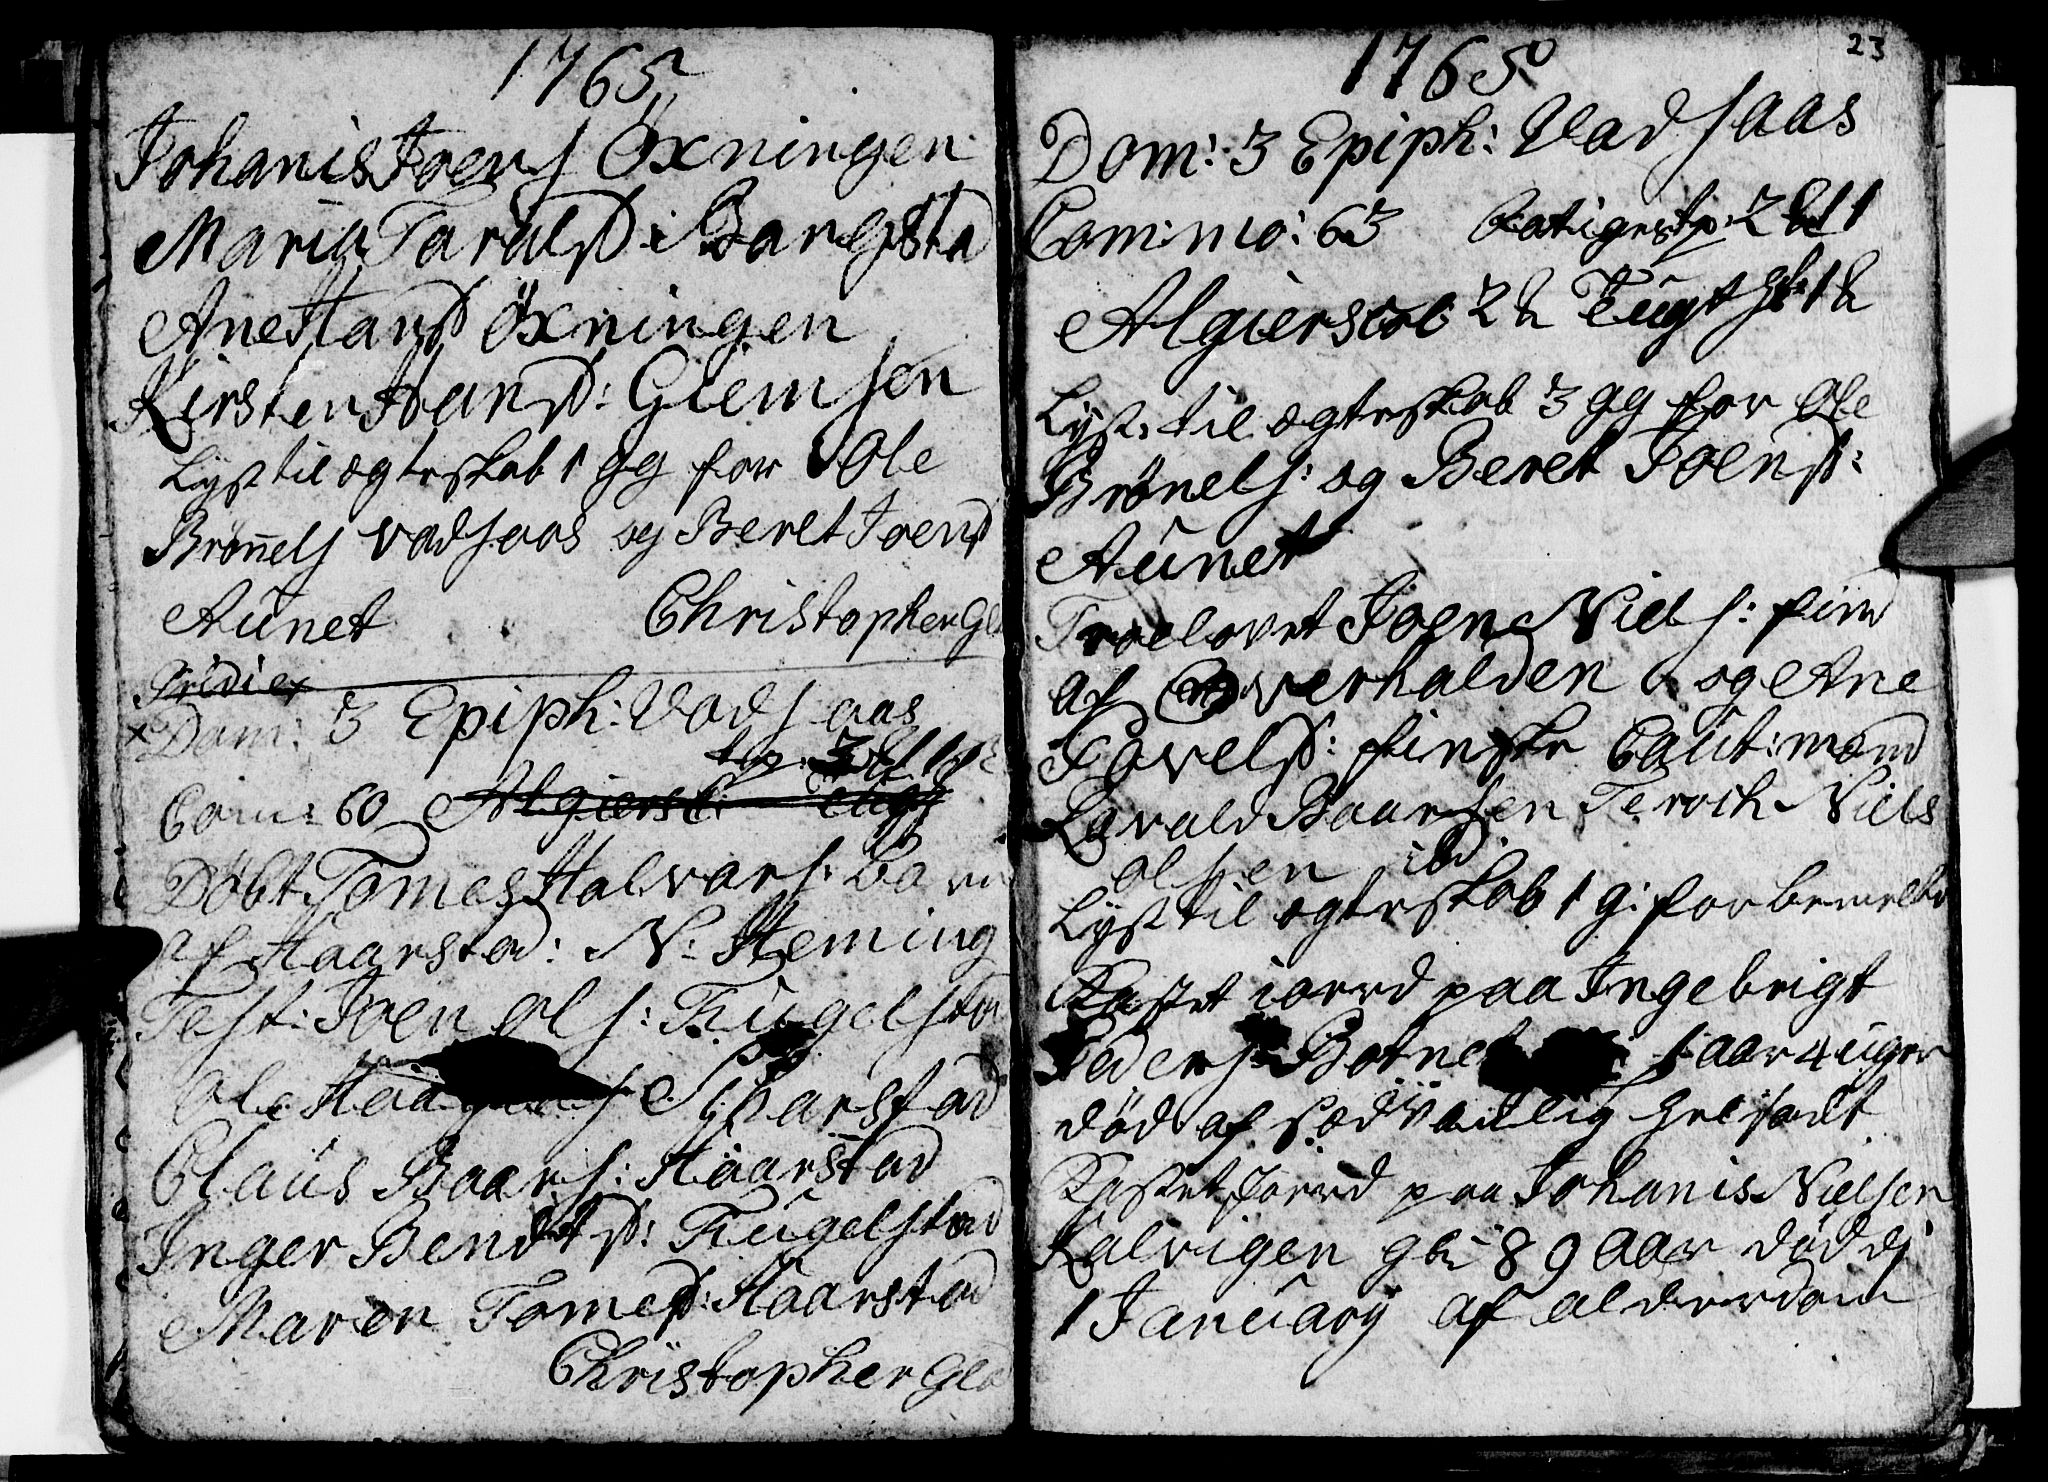 1765
Johanis Joens Öxningen
Maria Taralsd: Bangsta
Ane Hansd Öxningen
Kirsten Hansd: Giemsen
Lyst til ægteskab 1 gg for Ole
Brønnels Vadsaas og Beret Joensd
Aunet Christopher Gla
Dom: 3 Epiph: Vadsaas
Com: 60 Algiersl: Tugt
Døbt Tomes Halvars: barn
af Haarstad: N: Heming
Test: Joen Ols: Fugelsta
Ole Spparstad
Claus Baars: Haarstad
Inger Bendtsd: Fugelstad
Maren Tomesd: Haarstad
Christopher Gla
23
1765
Dom: 3 Epiph: Vadsaas
Com: no: 63
Algiersl 2 Tugt 1
Lyst: til ægteskab 3 gg for Ole
Brønels: og Beret Joensd:
Aunet
Troelovet Joen Niels: find
af Overhalden og Ane
Povelsd: finske Caut: mænd
Lavald Baarsen Teroch Niels
Olsen ibd.
Lyst til ægteskab 1 g: for bemelte
Kastet iord paa Ingebrigt
Peders: Botnet 1 aar 4 uger
død af sædvanlig
Kastet Jord paa Johanis Nielsen
Kalvigen 89 aar død dj
1 January af alderdom